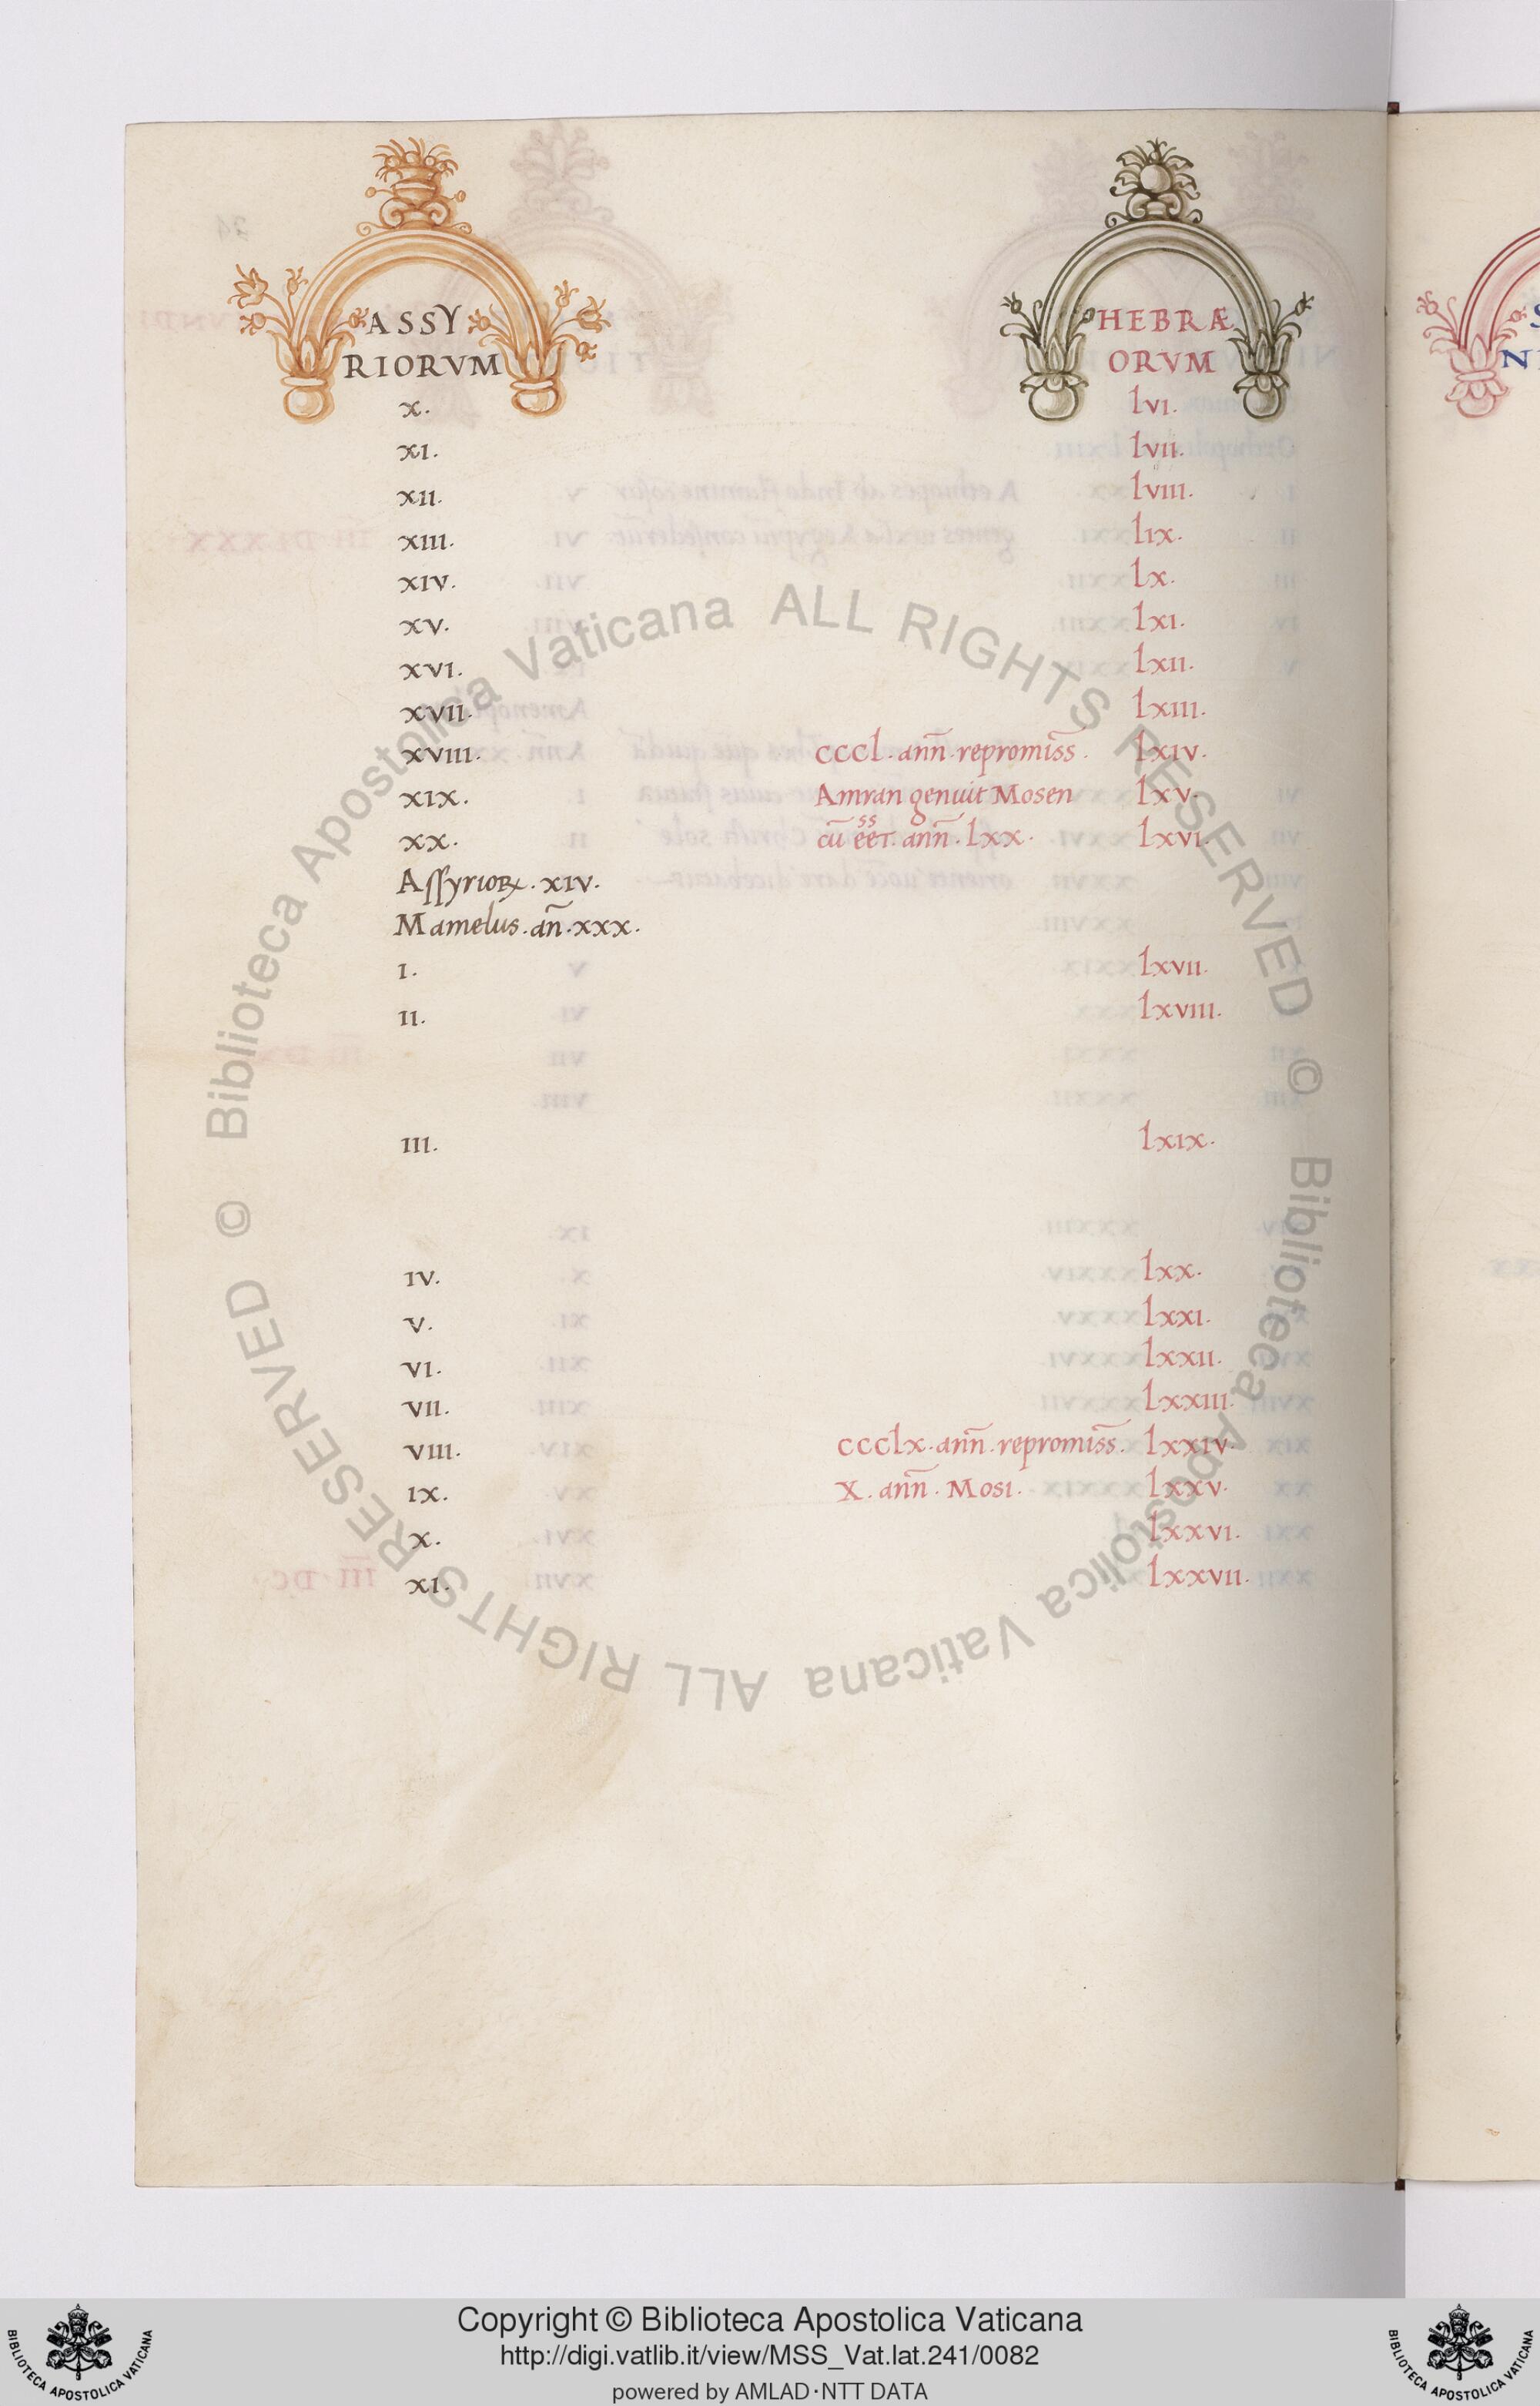 ASSY HEBRÆ
RIORVM ORVM
x. lvi.
xi. lvii.
xii. lviii.
xiii. lix.
xiv. lx.
xv. lxi.
xvi. lxii.
xvii. lxiii.
xviii. cccl. ann̄. repromis̄s. lxiv.
xix. Amran genuit Mosen lxv.
xx. cū eēt. ann̄. lxx. lxvi.
Assyrioꝝ. xiv.
Mamelus. an̄. xxx.
i. lxvii.
ii. lxviii.
iii. lxix.
iv. lxx.
v. lxxi.
vi. lxxii.
vii. lxxiii.
viii. ccclx. ann̄. repromis̄s. lxxiv.
ix. X. ann̄. Mosi. lxxv.
x. lxxvi.
xi. lxxvii.
© Biblioteca Apostolica Vaticana ALL RIGHTS RESERVED
© Biblioteca Apostolica Vaticana ALL RIGHTS RESERVED
Copyright © Biblioteca Apostolica Vaticana
http://digi.vatlib.it/view/MSS_Vat.lat.241/0082
powered by AMLAD·NTT DATA
BIBLIOTECA APOSTOLICA VATICANA
BIBLIOTECA APOSTOLICA VATICANA